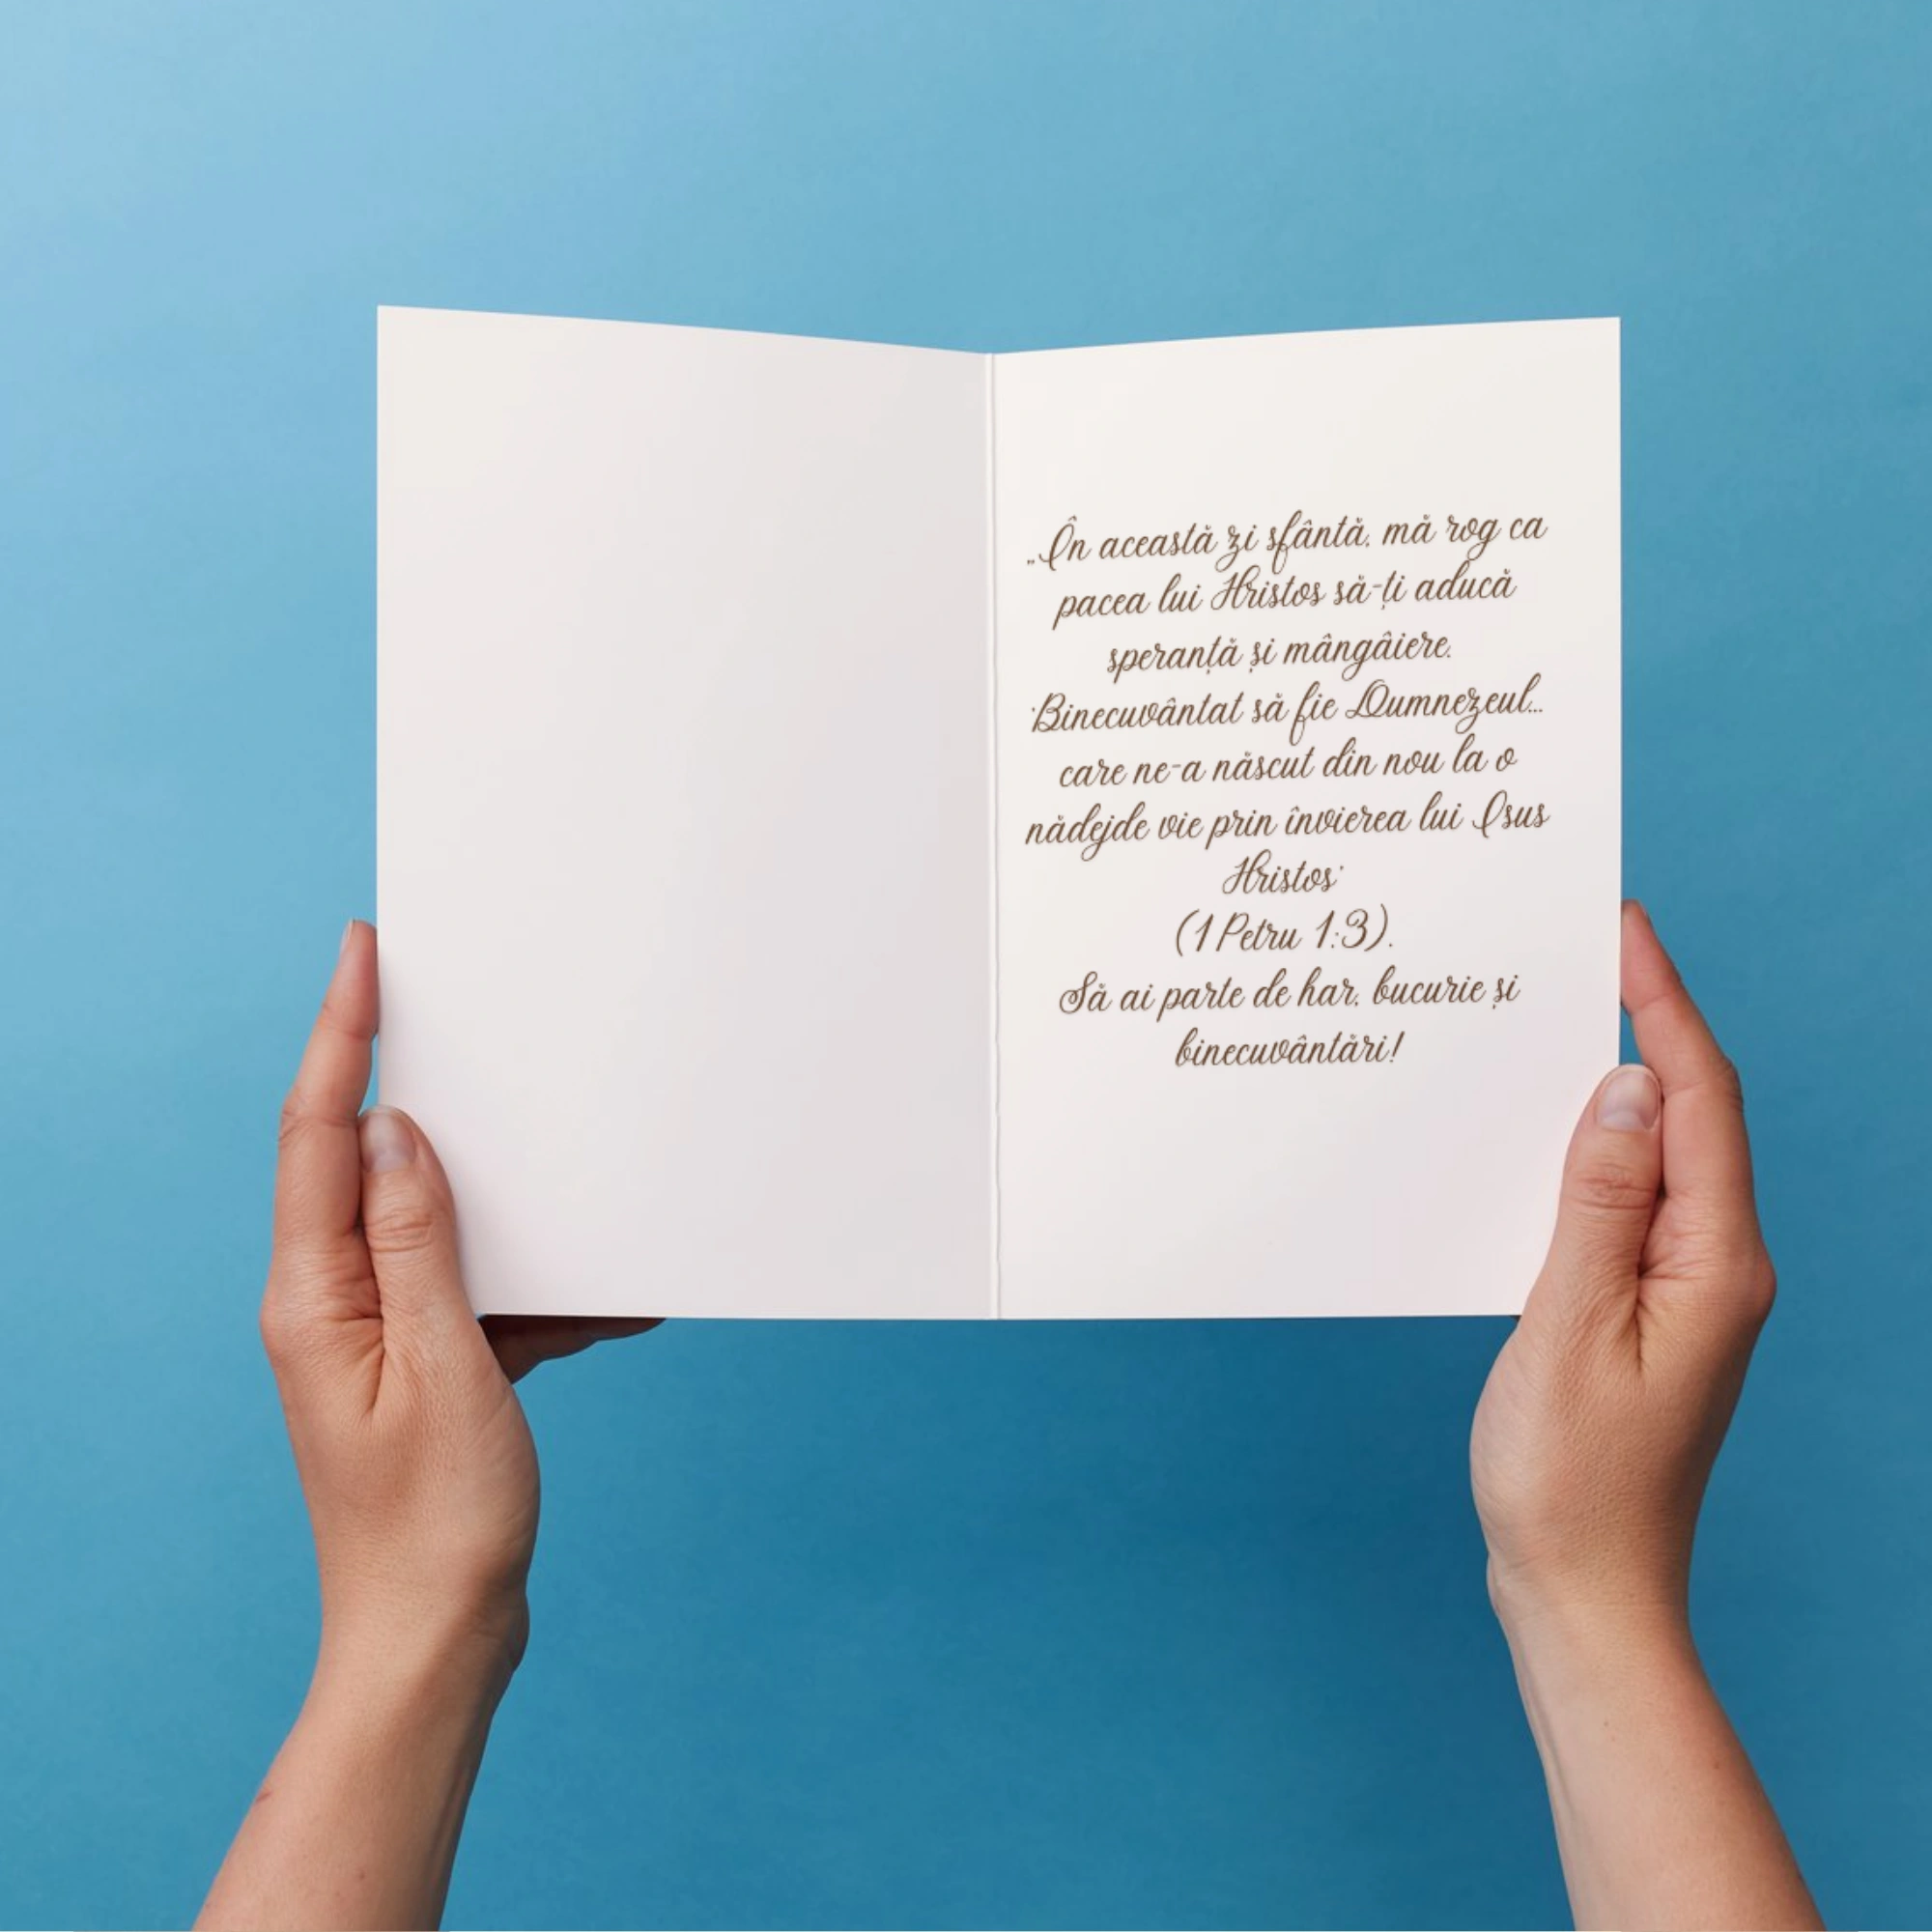 „În această zi sfântă, mă rog ca
pacea lui Hristos să-ți aducă
speranță și mângâiere.
'Binecuvântat să fie Dumnezeul...
care ne-a născut din nou la o
nădejde vie prin învierea lui Isus
Hristos'
(1 Petru 1:3).
Să ai parte de har, bucurie și
binecuvântări!